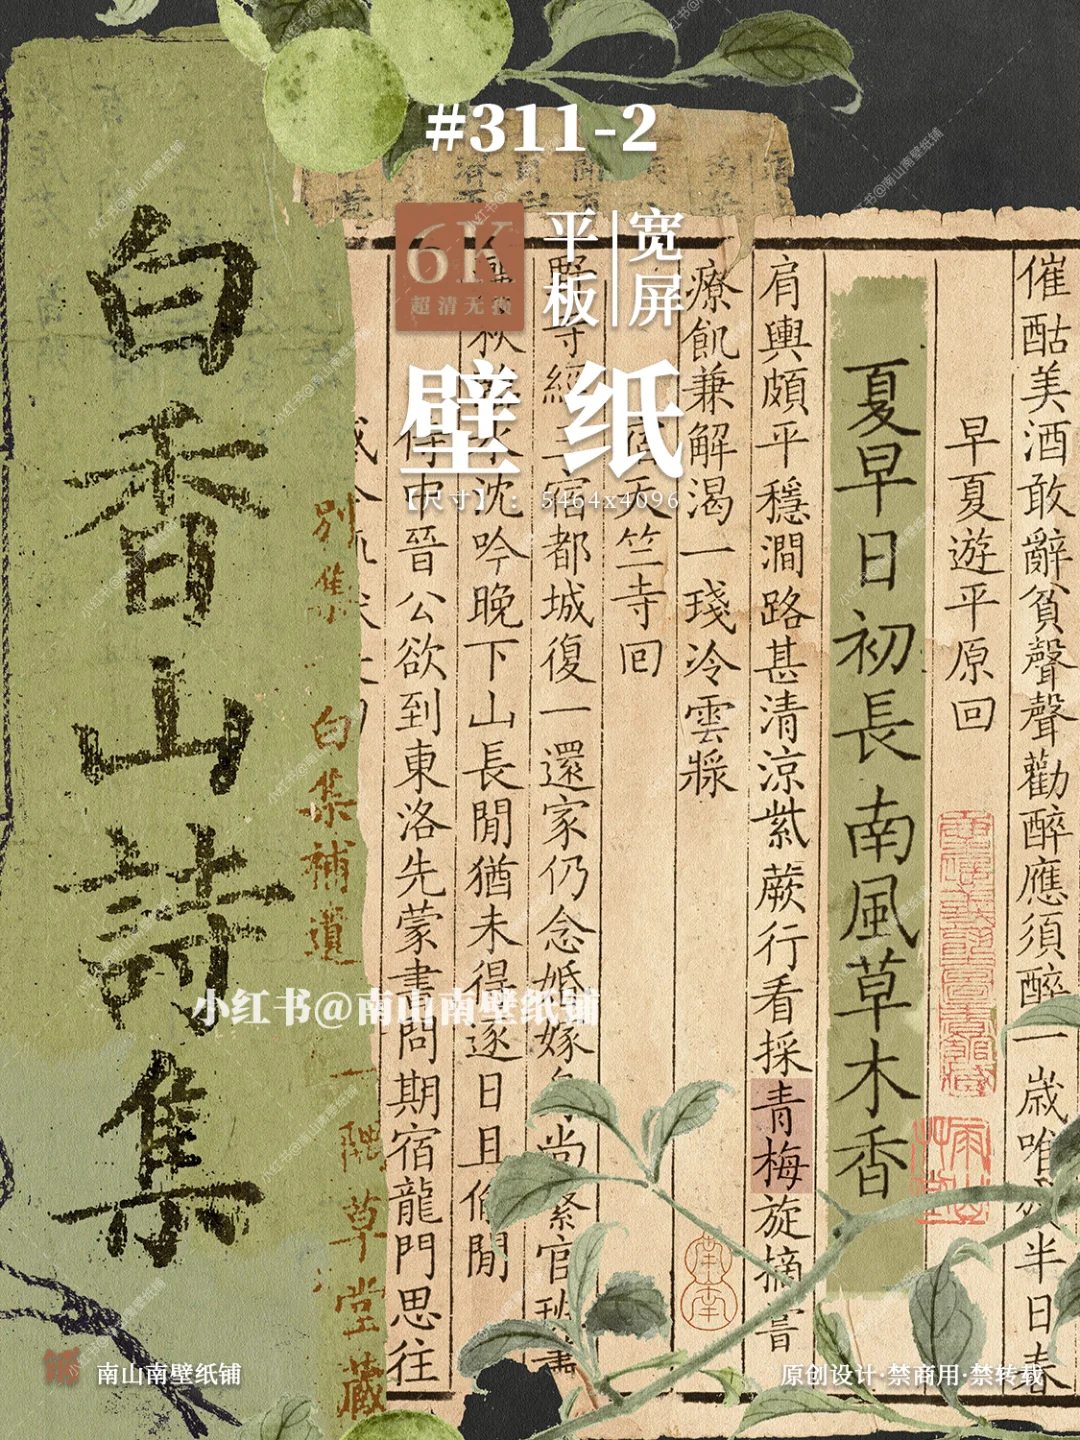 #311-2
6K
超清无痕
平板
宽屏
壁纸
【尺寸】：5464x4096
催酤美酒敢辭貧聲聲勸醉應須醉一歲唯殘半日春
早夏遊平原回
夏早日初長南風草木香
肩輿頗平穩澗路甚清涼紫蕨行看採青梅旋摘嘗
療飢兼解渴一琖冷雲漿
宿天竺寺回
寺經三宿都城復一還家仍念婚嫁身尚繫官班
秋水沈吟晚下山長閒猶未得逐日且偷閒
侍中晉公欲到東洛先蒙書問期宿龍門思往
白香山詩集
別集
白集補遺
一隅草堂藏
小红书@南山南壁纸铺
南山南壁纸铺
原创设计·禁商用·禁转载